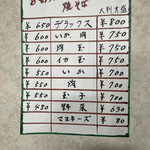 焼そば
大判大盛
¥650 デラックス ¥800
¥600 いか 肉 ¥750
¥600 肉 玉 ¥750
¥600 イカ 玉 ¥750
¥550 いか ¥700
¥550 肉 ¥700
¥550 玉子 ¥700
¥480 野菜 ¥630
マヨネーズ ¥80